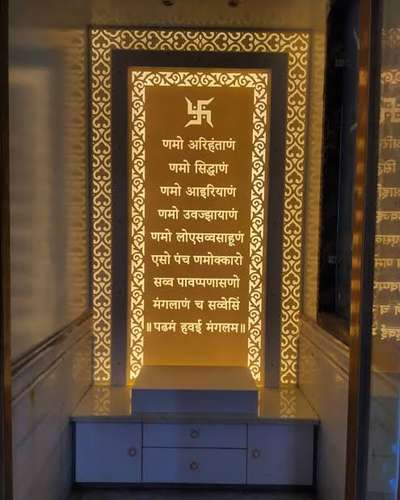 णमो अरिहंताणं
णमो सिद्धाणं
णमो आइरियाणं
णमो उवज्झायाणं
णमो लोएसव्वसाहूणं
एसो पंच णमोक्कारो
सव्व पावप्पणासणो
मंगलाणं च सव्वेसिं
॥पढमं हवई मंगलम॥